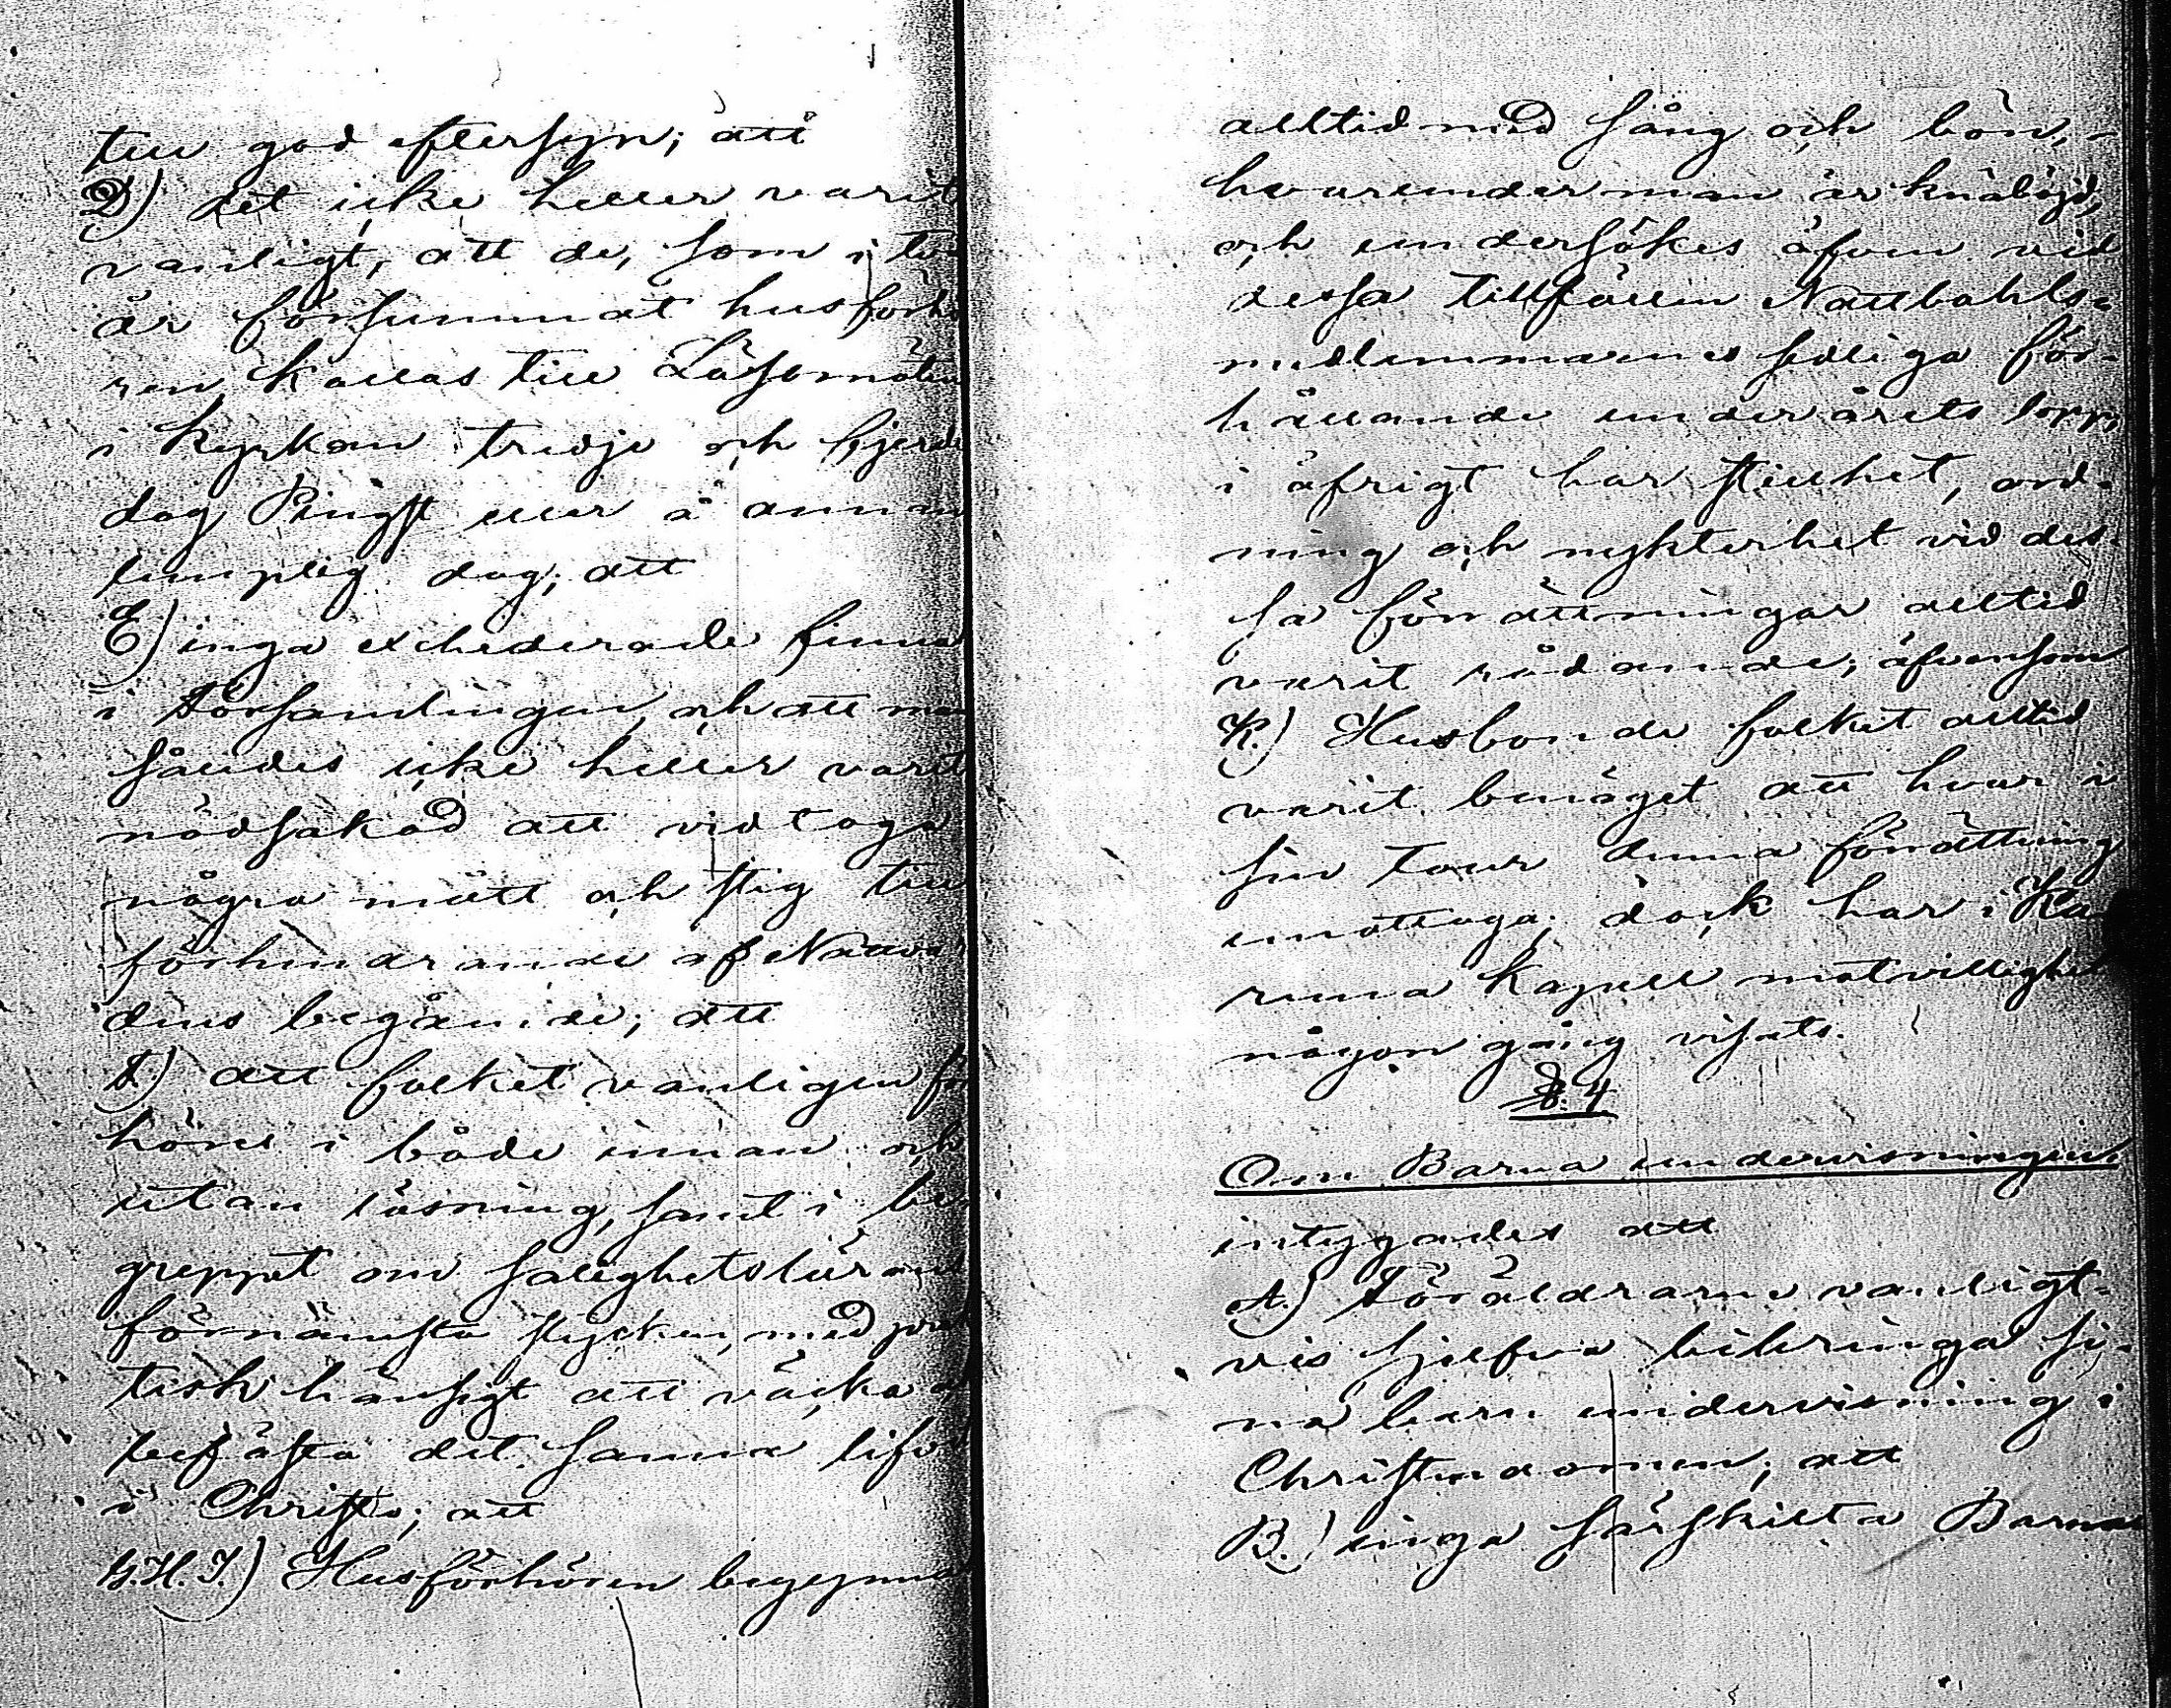 till god eftersyn; att
D) det icke heller varit
vanligt, att de, som i två
år försummat husförhö
ren kallas till Läsemöten
i kyrkan tredje och fjerde
dag Pingst eller å annan
lämplig dag; att
E) inga excluderade finnas
i Församlingen, och att man
således icke heller varit
nödsakad att vidtaga
några mått och steg till
förhindrande af Nattvar
dens begående; att
F.) att folket vanligen för
höres i både innan och
utan läsning, samt i be
greppet om salighetslärans
förnämsta stycken, med prak
tisk hänsigt att väcka och
befästa det sanna lifvet
i Christo; att
G.H.I.) Husförhören begynnas
alltid med sång och bön, -
hvarunder man är knäböjd,
och undersökes äfven vid
dessa tillfällen Nattbahls-
medlemmarnes sedliga för-
hållande under årets lopp,
i öfrigt har stillhet, ord-
ning och nykterhet vid des-
sa förrättningar alltid
varit rådande; äfvensom
K.) Husbonde folket alltid
varit benäget att hvar i
sin tour denna förrättning
emottaga; dock har i Ka
runa kapell motvillighet
någon gång visats.
§. 4
Om Barna undervisningen
intygades att
A.) Föräldrarne vanligt-
vis sjelfva bibringa si-
na barn undervisning i
Christendomen; att
B.) inga särskilta Barna